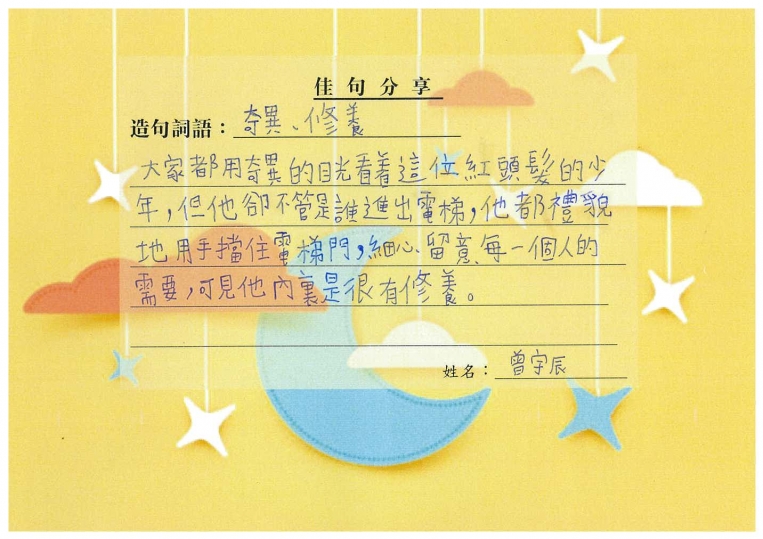 佳句分享
造句詞語：奇異、修養
大家都用奇異的目光看著這位紅頭髮的少
年，但他卻不管是誰進出電梯，他都禮貌
地用手擋住電梯門，細心留意每一個人的
需要，可見他內裏是很有修養。
姓名：曾宇辰